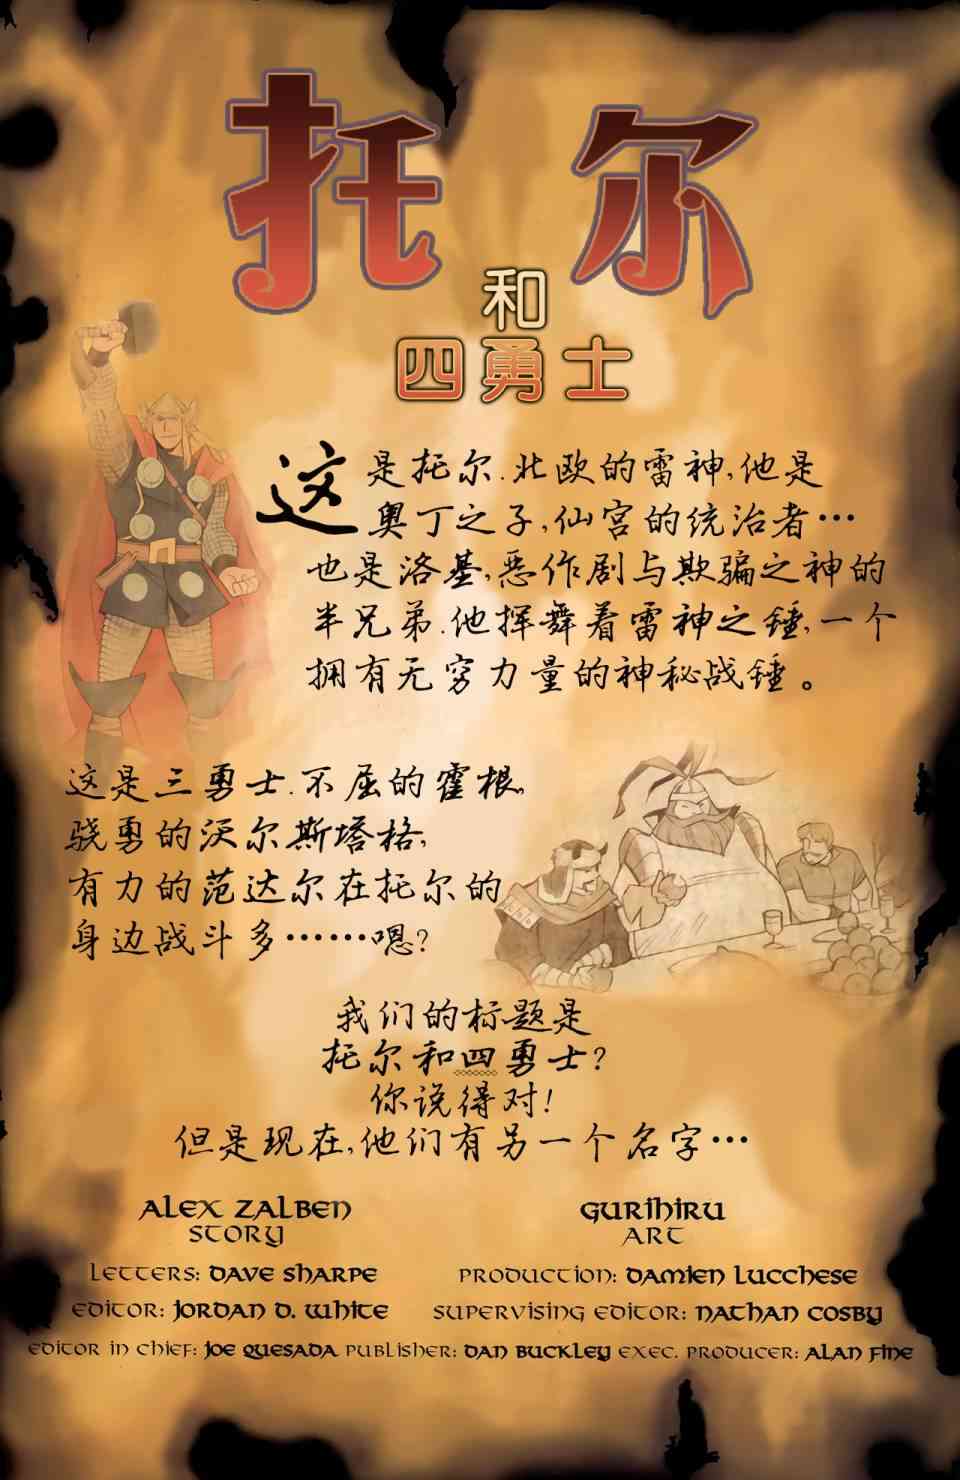 托尔
和
四勇士
这是托尔.北欧的雷神,他是
奥丁之子,仙宫的统治者…
也是洛基,恶作剧与欺骗之神的
半兄弟.他挥舞着雷神之锤,一个
拥有无穷力量的神秘战锤。
这是三勇士.不屈的霍根,
骁勇的沃尔斯塔格,
有力的范达尔在托尔的
身边战斗多……嗯?
我们的标题是
托尔和四勇士?
你说得对!
但是现在,他们有另一个名字…
ALEX ZALBEN
STORY
GURIHIRU
ART
LETTERS: DAVE SHARPE
PRODUCTION: DAMIEN LUCCHESE
EDITOR: JORDAN D. WHITE
SUPERVISING EDITOR: NATHAN COSBY
EDITOR IN CHIEF: JOE QUESADA PUBLISHER: DAN BUCKLEY EXEC. PRODUCER: ALAN FINE